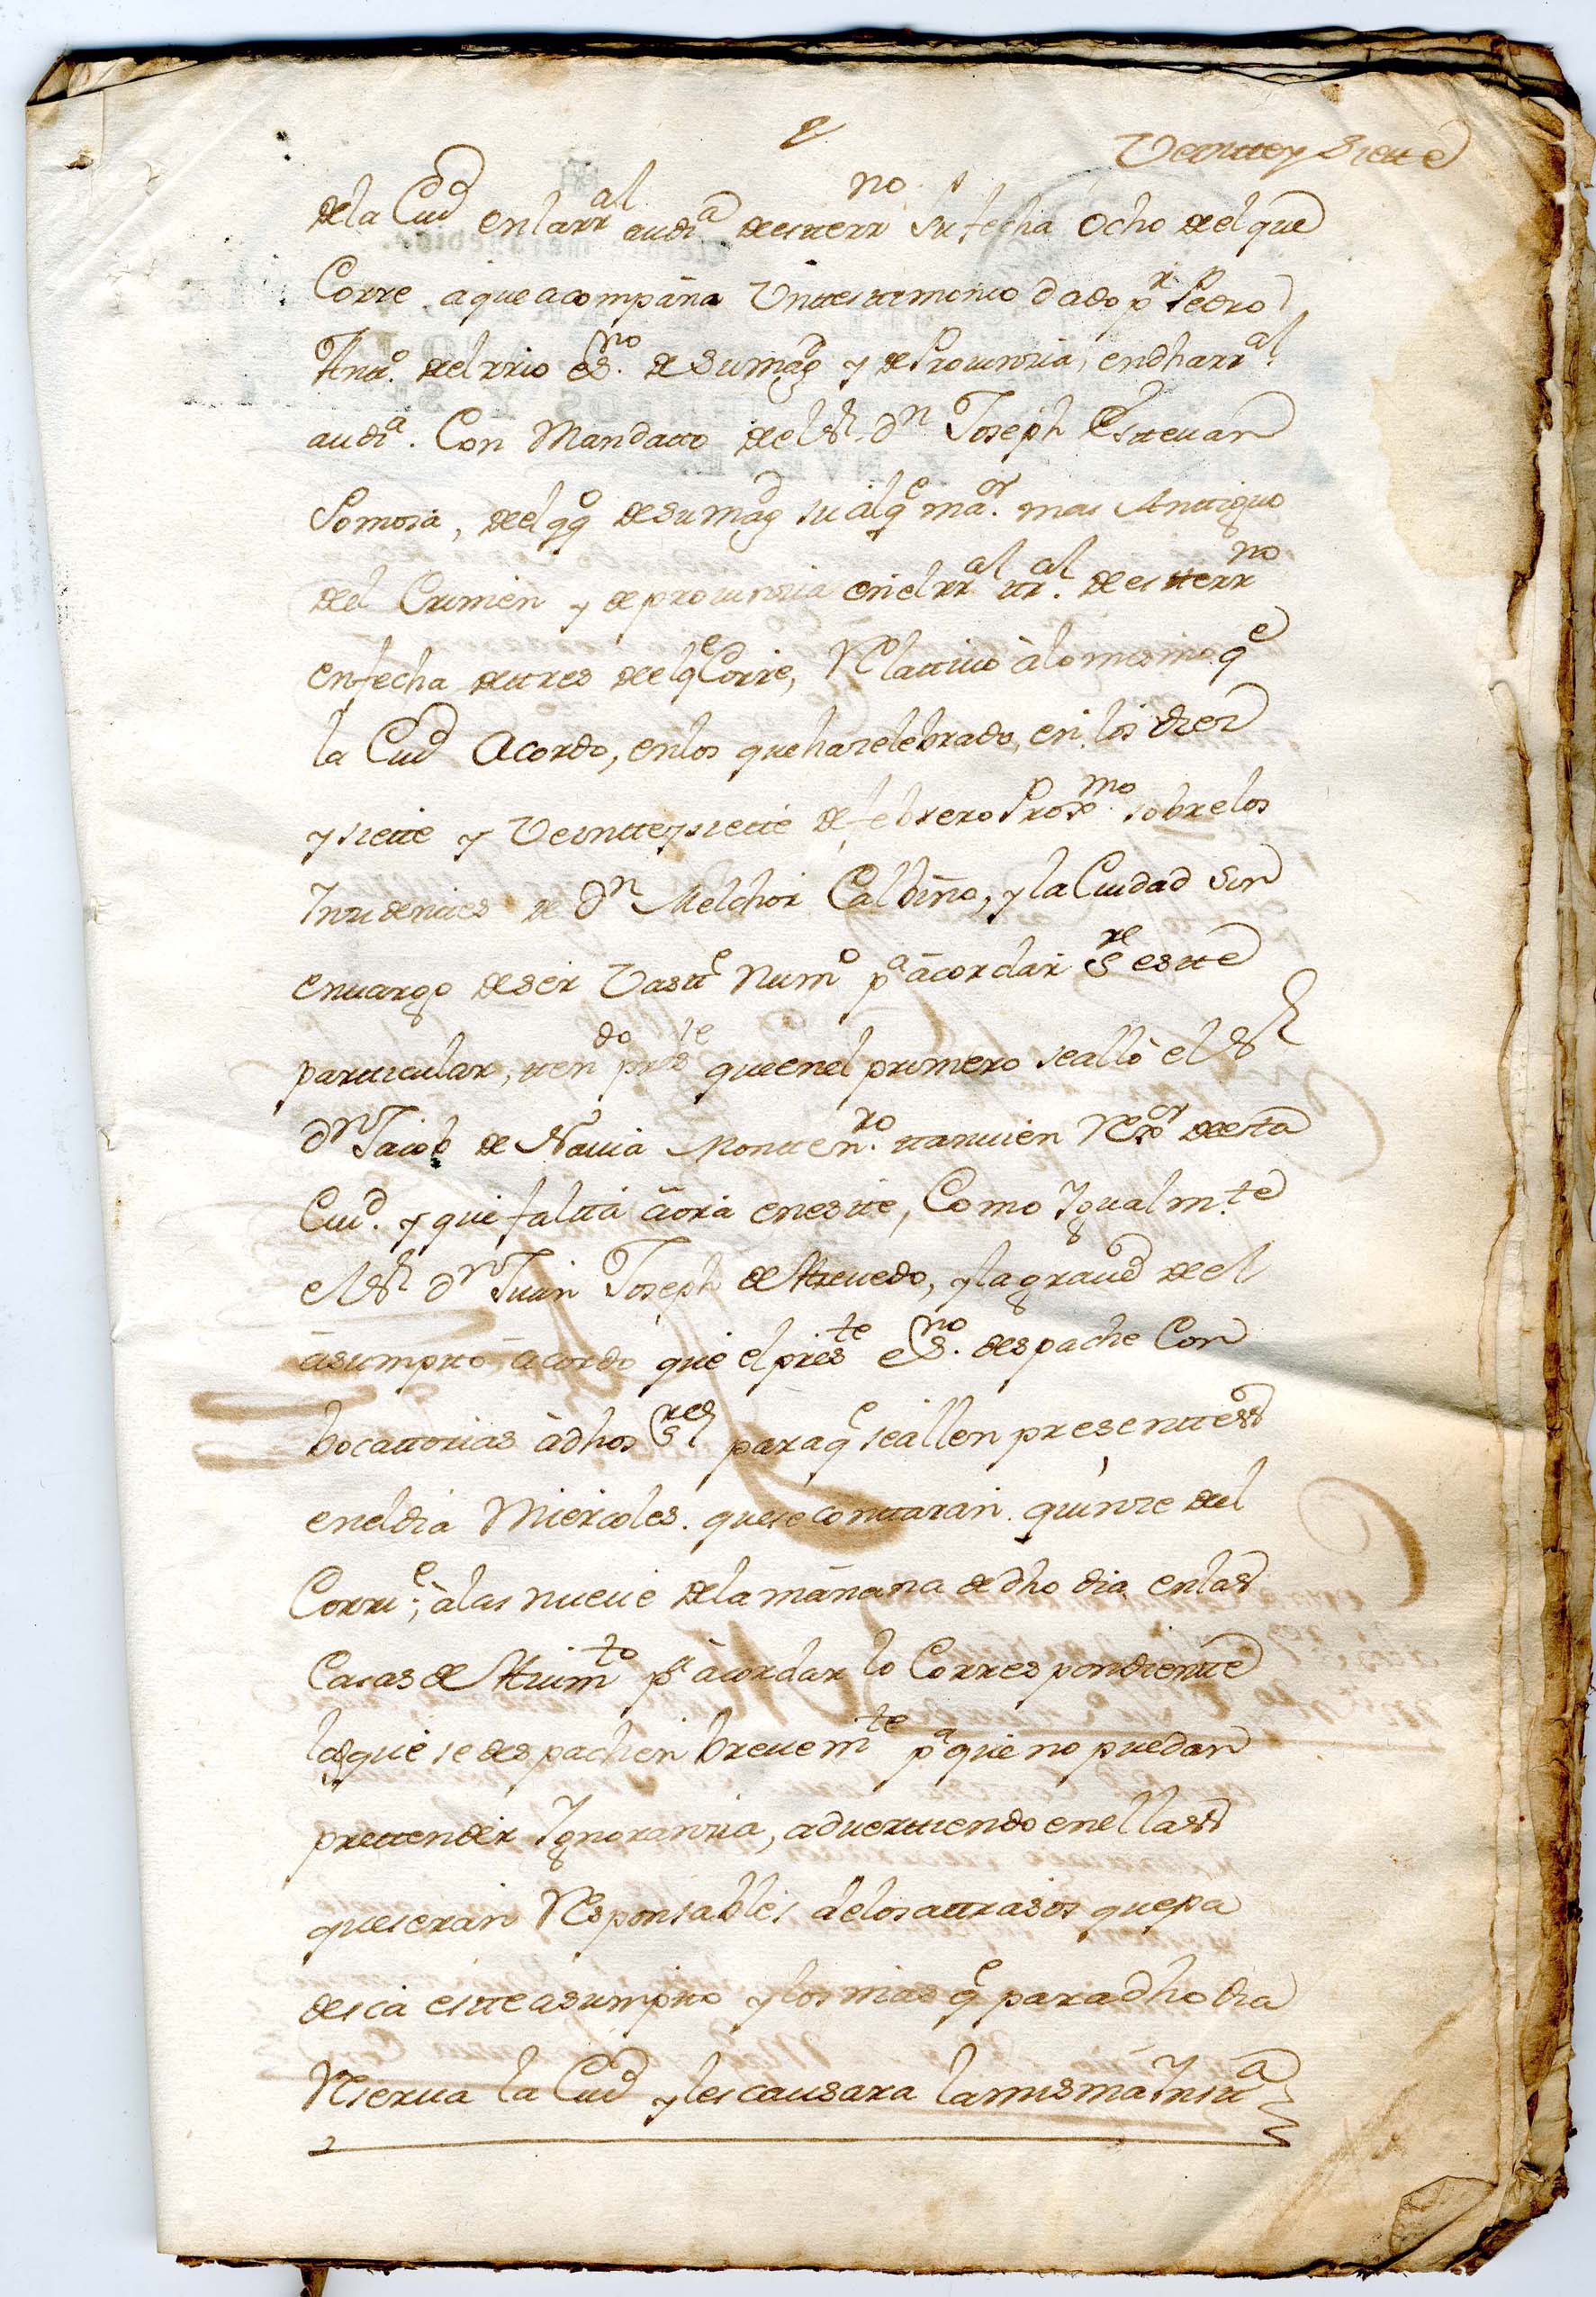 Veintte y Siette
de la Ciud en la rral audia de estte rrno su fecha ocho de el que
Corre, a que acompaña Un ttesttimonio dado pr Pedro
Antto. del rrio esno. de su magd y de Prouinzia, en dha rral.
audia. Con Mandatto de el Sr. Dn Joseph Esteuan
Somoza, de el qo de su magd su alqe maor. mas Anttiguo
del Crimen y de prouinzia en el rral ttral. de estte rrno
en fecha de ttres de el qe Corre, Relattiuo à lo mesmo qe
la Ciud Acordo, en los que ha zelebrado, en los diez
y siette y Veintte y siette de febrero Proxmo. sobre los
Inzidenttes de Dn Melchor Caldiño, y la Ciudad sin
enuargo de ser Vastte Numo pa acordar sre estte
partticular, ttendo prese que en el primero se alló el Sr
Dn Jacob de Nauia Montteno. ttanuien Rexor de esta
Ciud. y que faltta aora en estte, Como Igualmte
el Sr Dn Juan Joseph de Azeuedo, y la graud de el
asumptto, acordo que el preste esno. despache Con
bocattorias à dhos sres para qe se allen presenttes
en el dia Miercoles. que se conttaran. quinze del
Corrte; à las nueue de la mañana de dho dia en las
Casas de Aiuimto pa acordar lo Correspondientte
las que se despachen breuemte pa que no puedan
prettender Ignoranzia, aduerttiendo en ellas
que seran Responsables de los attrasos que pa
desca estte asumptto y los mas qe para dho dia
Rserua la Ciud y les causara la misma Insta